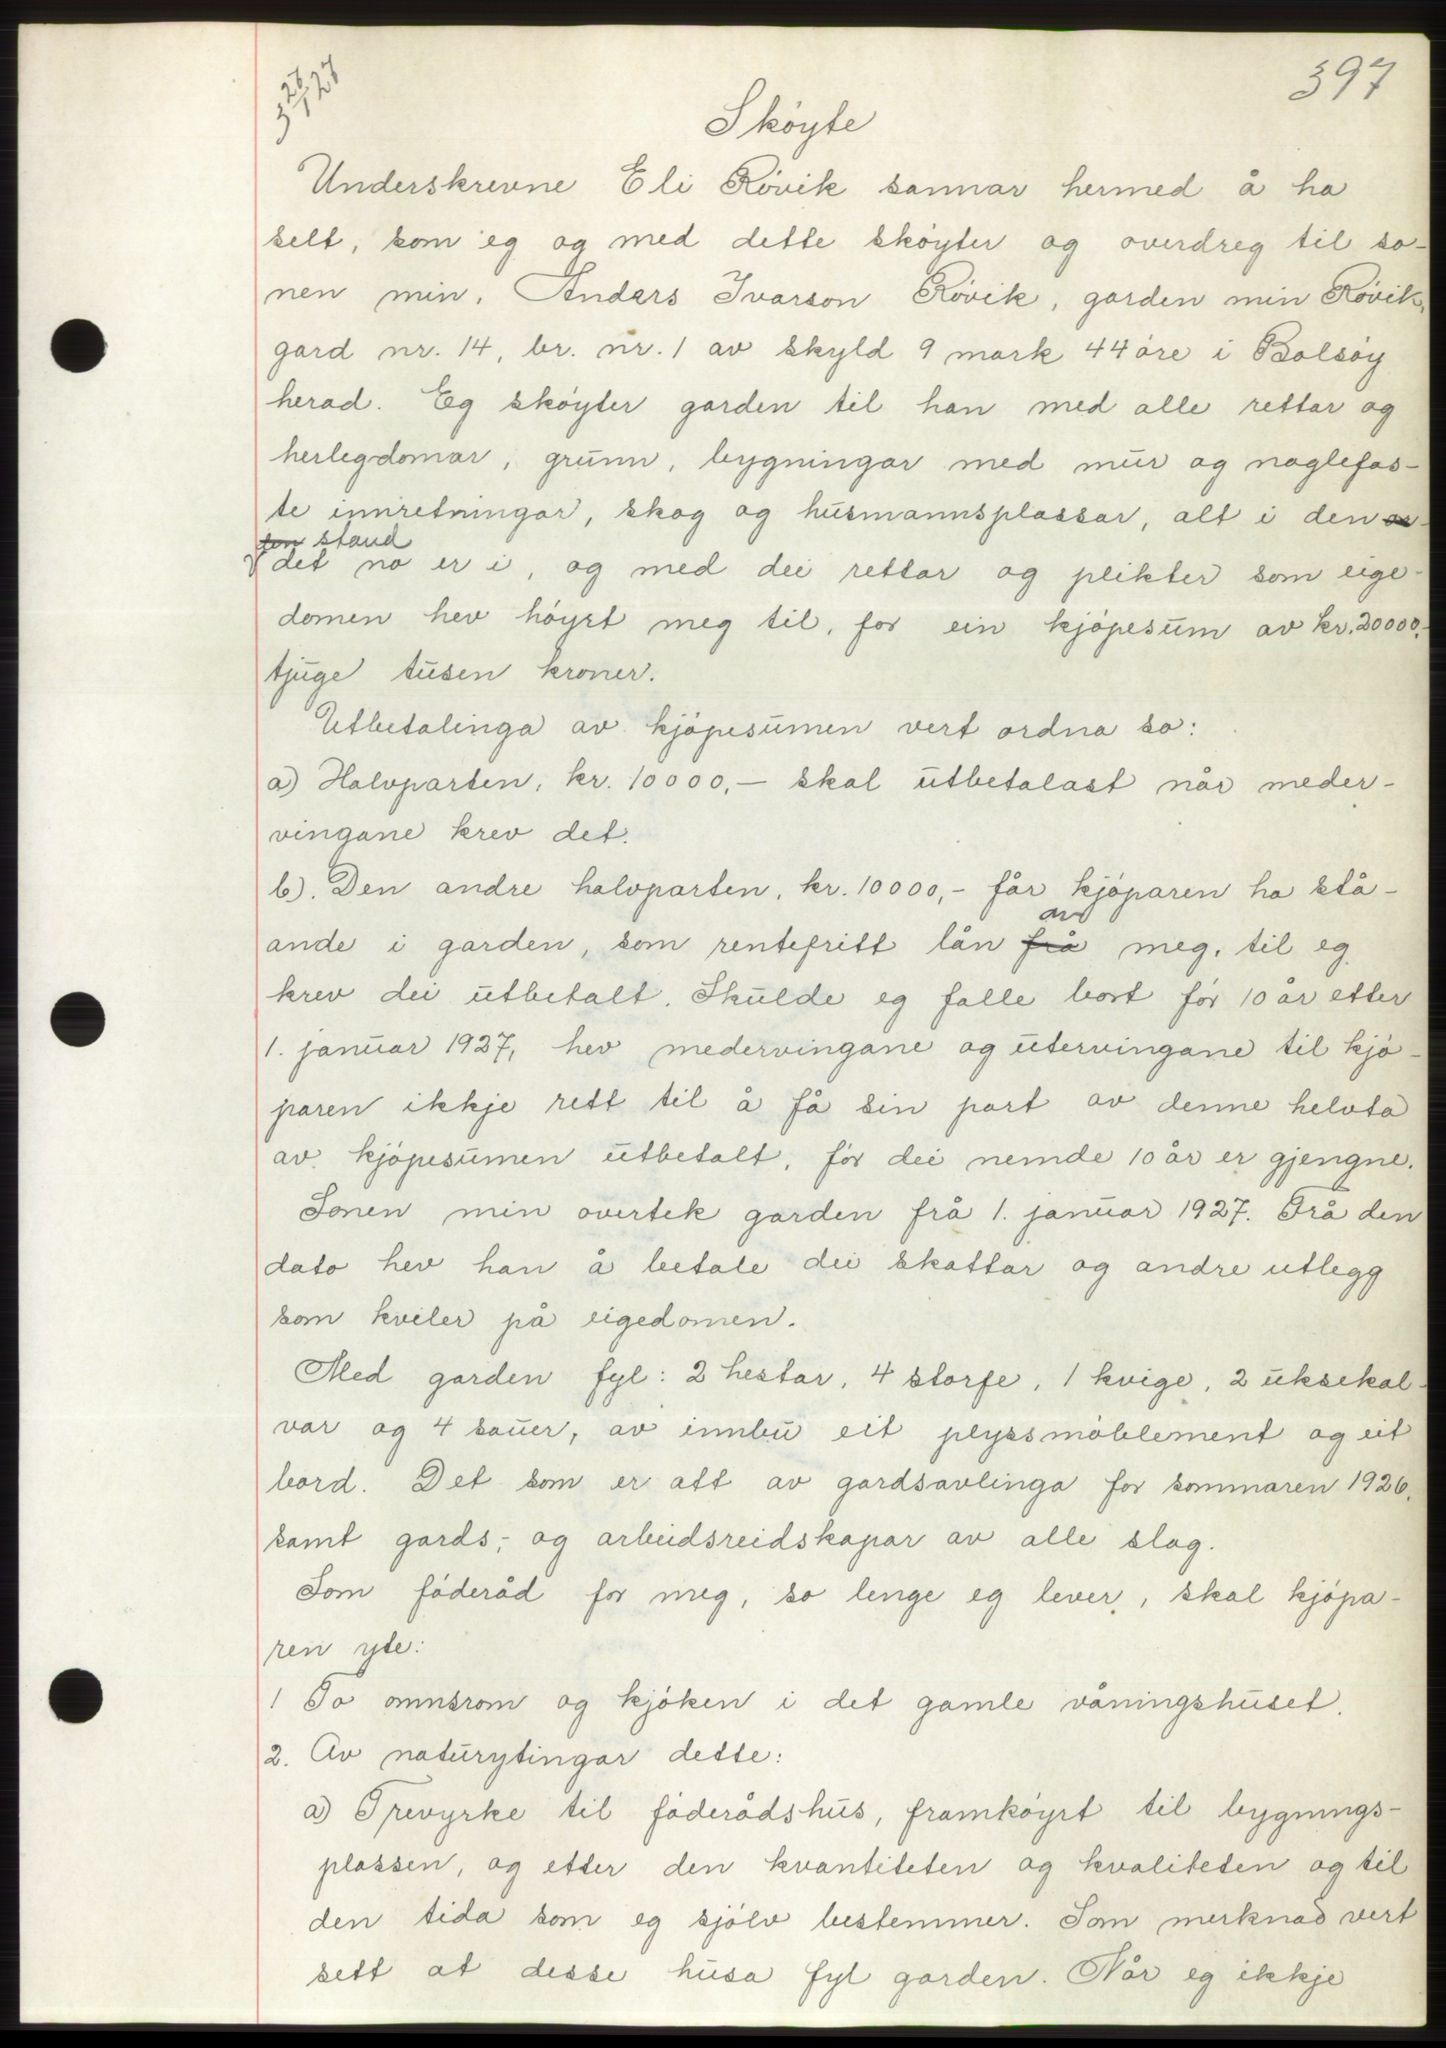 397
3 28/1 27
Skøyte
Underskrevne Eli Røvik sannar hermed å ha
selt, som eg og med dette skøyter og overdreg til so-
nen min, Anders Ivarson Røvik, garden min Røvik,
gard nr. 14, br. nr. 1 av skyld 9 mark 44 øre i Bolsøy
herad. Eg skøyter garden til han med alle rettar og
herlegdomar, grunn, bygningar med mur og naglefas-
te innretningar, skog og husmannsplassar, alt i den
stand
det no er i, og med dei rettar og plikter som eige-
domen hev høyrt meg til, for ein kjøpesum av kr. 20000,-
tjuge tusen kroner.
Utbetalinga av kjøpesumen vert ordna so:
a) Halvparten, kr. 10000,- skal utbetalast når meder-
vingane krev det.
b). Den andre halvparten, kr. 10000,- får kjøparen ha stå-
av
ande i garden, som rentefritt lån frå meg, til eg
krev dei utbetalt. Skulde eg falle bort før 10 år etter
1. januar 1927, hev medervingane og utervingane til kjø-
paren ikkje rett til å få sin part av denne helvta
av kjøpesumen utbetalt, før dei nemde 10 år er gjengne.
Sonen min overtek garden frå 1. januar 1927. Frå den
dato hev han å betale dei skattar og andre utlegg
som kviler på eigedomen.
Med garden fyl: 2 hestar, 4 storfe, 1 kvige, 2 uksekal-
var og 4 sauer, av innbu eit plyssmøblement og eit
bord. Det som er att av gardsavlinga for sommaren 1926,
samt gards,- og arbeidsreidskapar av alle slag.
Som føderåd for meg, so lenge eg lever, skal kjøpa-
ren yte:
1 To omnsrom og kjøken i det gamle våningshuset.
2. Av naturytingar dette:
a) Trevyrke til føderådshus, framkøyrt til bygnings-
plassen, og etter den kvantiteten og kvaliteten og til
den tida som eg sjølv bestemmer. Som merknad vert
sett at desse husa fyl garden. Når eg ikkje